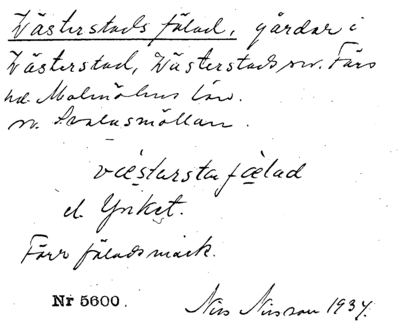 Västerstads fälad, gårdar i
Västerstad, Västerstads sn. Färs
hd Malmöhus län.
sv. Svalasmöllan.
væstarsta fælad
el. Ynket.
Förr fäladsmark.
Nr 5600.
Nils Nilsson 1934.